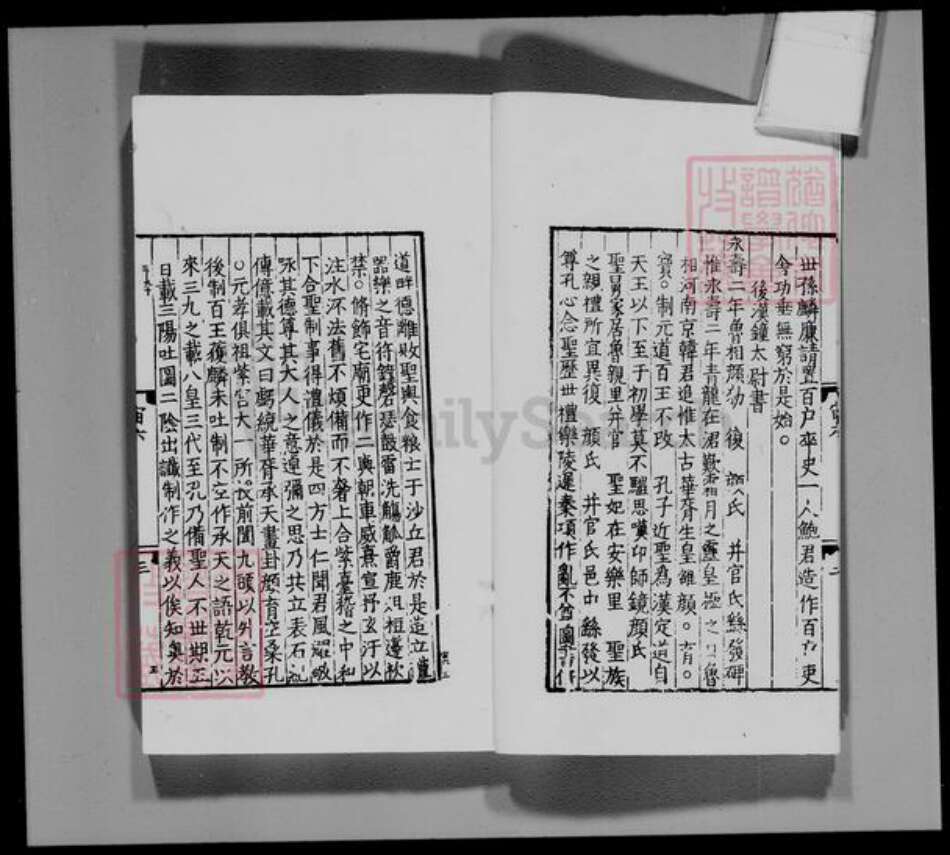 世孫麟廉請置百户卒史一人鮑君造作百户吏
舍功垂無窮於是始。
後漢鍾太尉書
永壽二年魯相韓勑 復 顏氏 并官氏繇發碑
惟永壽二年青龍在涒歎霜月之靈皇極之日魯
相河南京韓君追惟太古華胥生皇雄顏。育。
寶。制元道百王不改 孔子近聖為漢定道自
天王以下至于初學莫不驅思嘆卬師鏡顏氏
聖舅家居魯親里并官 聖妃在安樂里 聖族
之親禮所宜異復 顏氏 并官氏邑中繇發以
尊孔心念聖歷世禮樂陵遲秦項作亂不尊圖書倍
道畔德離敗聖輿食粮亡于沙丘君於是造立禮
器樂之音符鍾磬瑟鼓雷洗觴觚爵鹿俎梪籩柉
禁。脩飾宅廟更作二輿朝車威熹宣抒玄汙以
注水沠法舊不煩備而不奢上合紫臺稽之中和
下合聖制事得禮儀於是四方士仁聞君風燿敬
咏其德尊其大人之意逴彌之思乃共立表石
傳億載其文曰戲統華胥承天畫卦顏育空桑孔
○元孝俱祖紫宮大一所授前闓九頭以升言教
後制百王獲麟来吐制不空作承天之語乾元以
來三九之載八皇三代至孔乃備聖人不世期五
百載三陽吐圖二陰出讖制作之義以俟知奥於